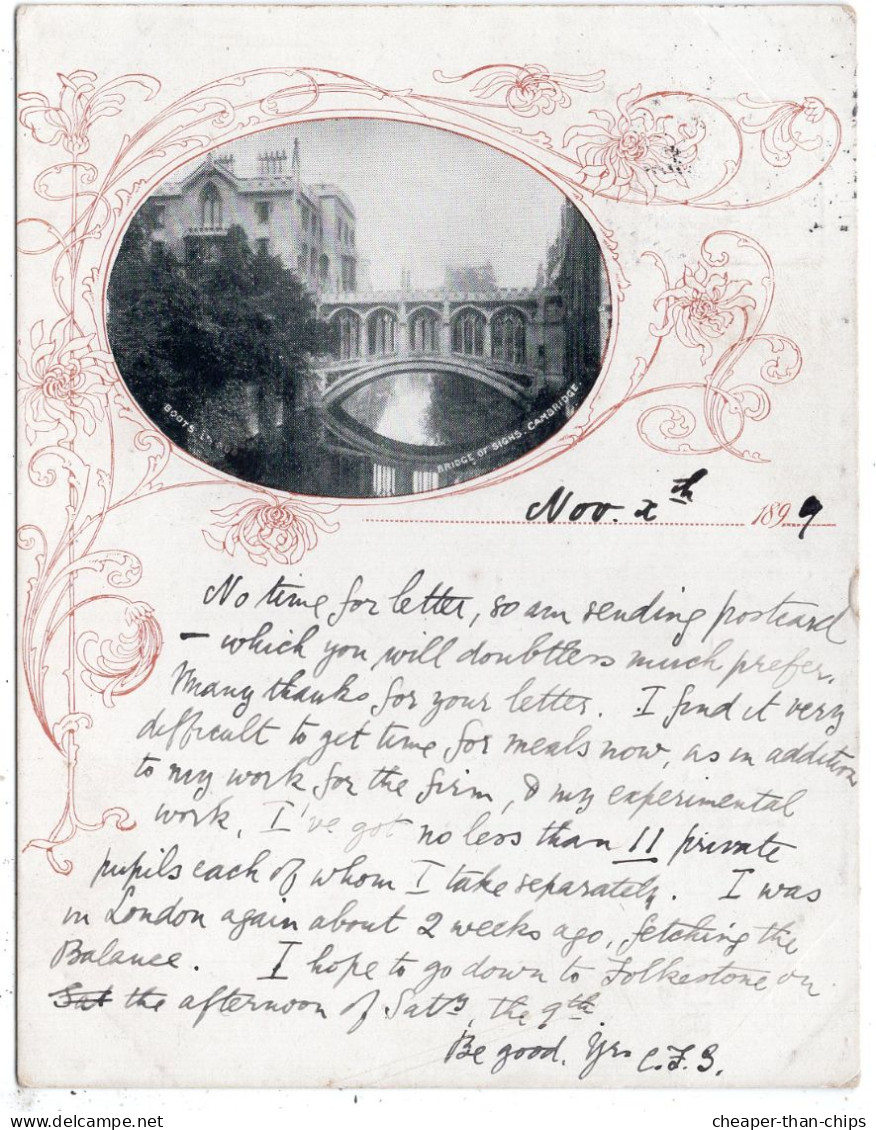 BOOTS LTD
BRIDGE OF SIGHS. CAMBRIDGE.
Nov. xth 1899
No time for letter, so am sending postcard
– which you will doubtless much prefer.
Many thanks for your letter. I find it very
difficult to get time for meals now, as in addition
to my work for the firm, & my experimental
work, I've got no less than 11 private
pupils each of whom I take separately. I was
in London again about 2 weeks ago, fetching the
Balance. I hope to go down to Folkestone on
the afternoon of Satdy, the 9th.
Be good. Yrs C.F.G.
cheaper-than-chips